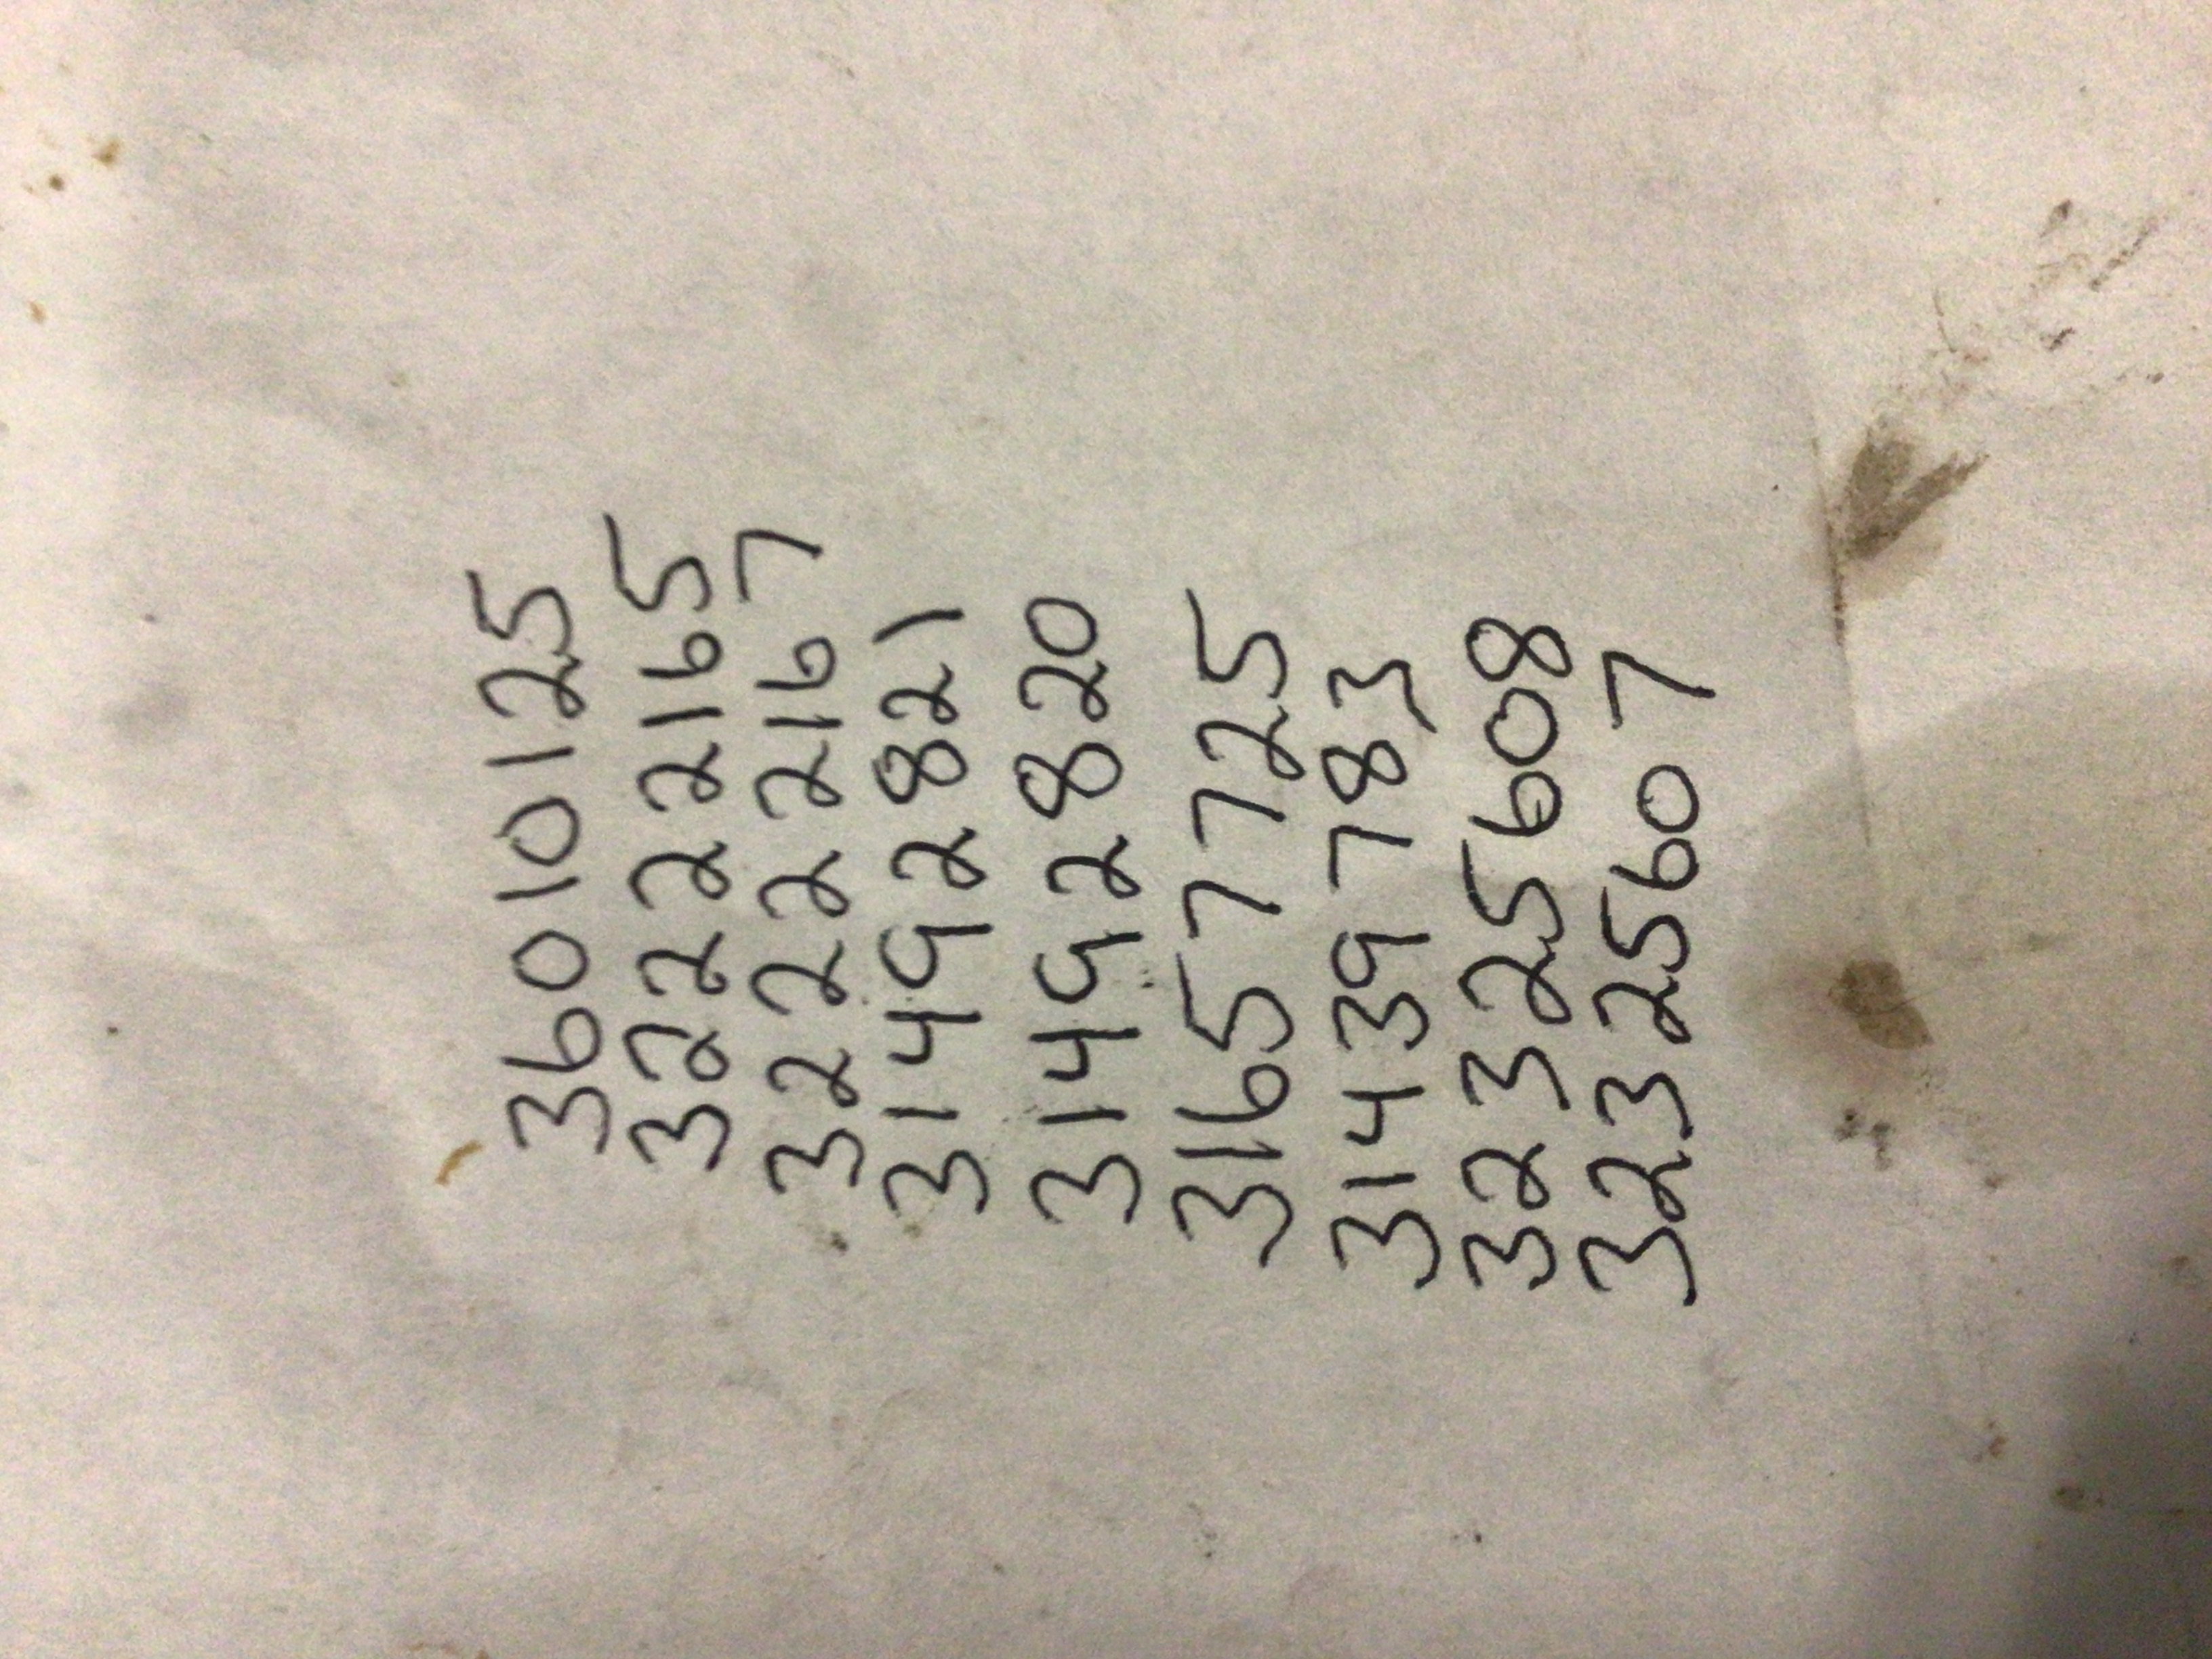 36010125
32222165
32222167
31492821
31492820
31657725
31439783
32325608
32325607